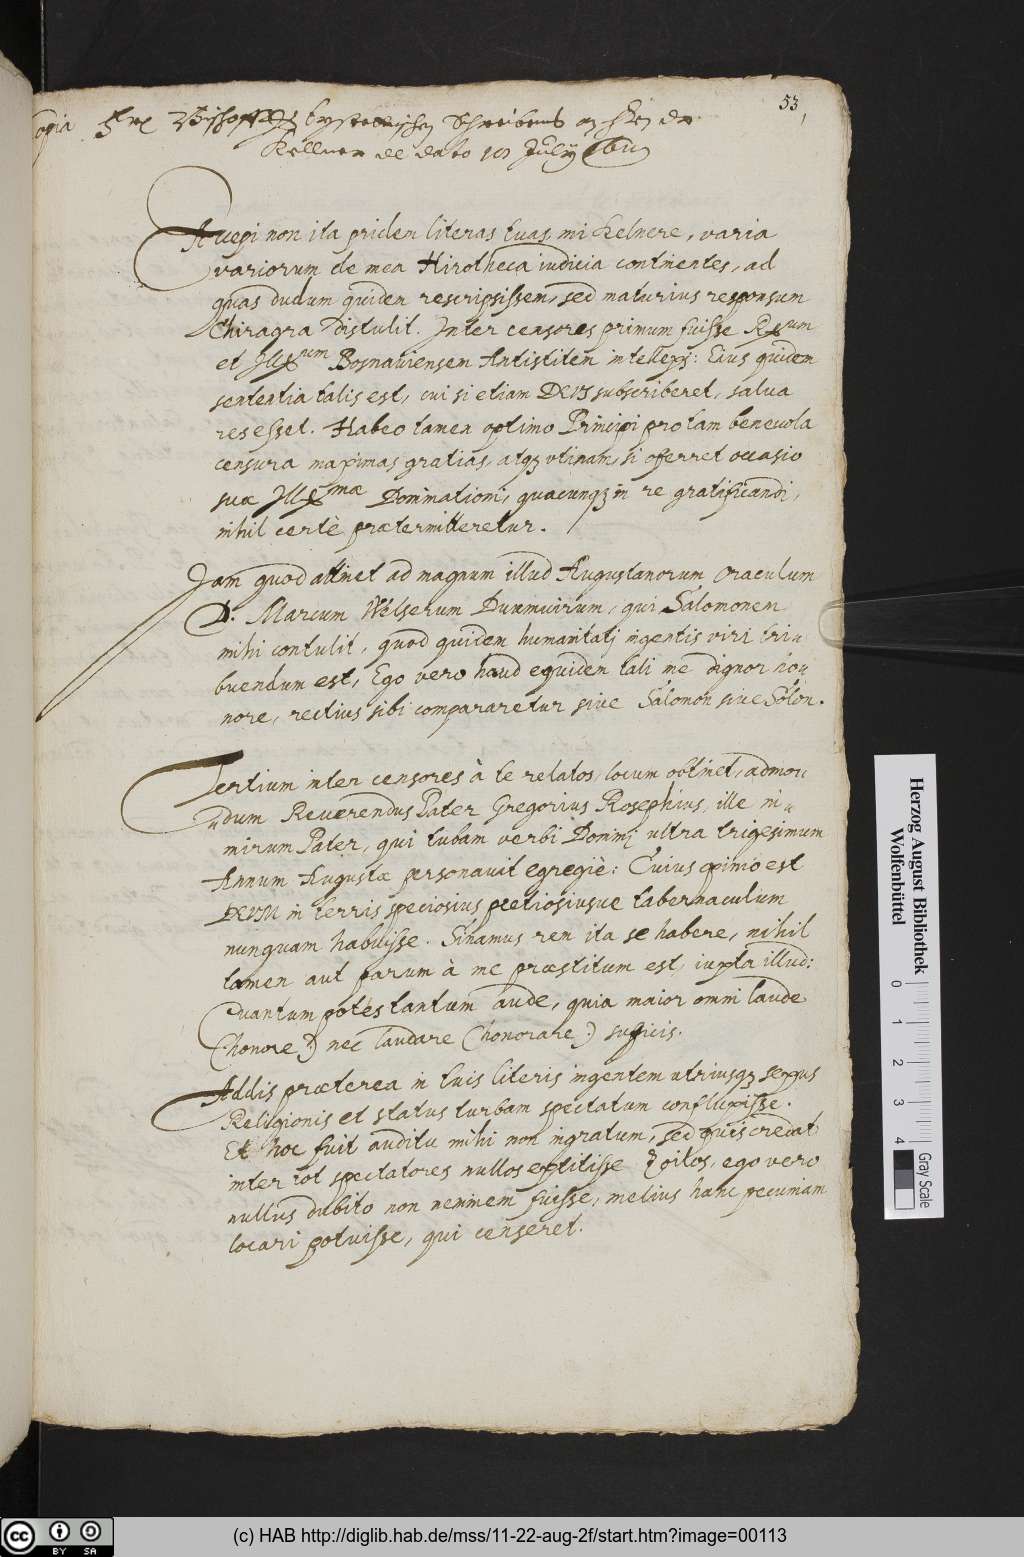 53
Copia Hrn Bischoffs Eystettischen Schreibens an Hern
Kellner de dato 10 July 1611
Accepi non ita pridem literas tuas mi Kelnere, varia
variorum de mea Hirotheca iudicia continentes, ad
quas dudum quidem rescripsissem, sed maturius responsum
Chiragra distulit. Inter censores primum fuisse Rx^um
et Illx^um Bosnauiensem Antistitem intellexi: Eius quidem
sententia talis est, cui si etiam DEVS subscriberet, salua
res esset. Habeo tamen optimo Principi pro tam beneuola
censura maximas gratias, atqz vtinam, si offerret occasio
suæ Illx^mæ Dominationi, quacunqz in re gratificandi,
nihil certè prætermitteretur.
Jam quod attinet ad magnum illud Augustanorum Oraculum
D. Marcum Welserum Duumuirum, qui Salomonem
mihi contulit, quod quidem humanitati ingentis viri tri-
buendum est, Ego vero haud equidem tali me dignor ho-
nore, rectius sibi compararetur siue Salomon siue Solon.
Tertium inter censores à te relatos, locum obtinet, admo-
dum Reuerendus Pater Gregorius Rosephius, ille ni-
mirum Pater, qui tubam verbi Domini ultra trigesimum
Annum Augustæ personauit egregiè: Cuius opinio est
DEVM in terris speciosius pretiosiusue tabernaculum
nunquam habuisse. Sinamus rem ita se habere, nihil
tamen aut parum à me præstitum est, iuxta illud:
Quantum potes tantum aude, quia maior omni laude
(:honore:) nec laudare (honorare:) sufficis.
Addis præterea in tuis literis ingentem utriusqz sexus
Religionis et status turbam spectatum confluxisse.
Et hoc fuit auditu mihi non ingratum, sed quis credat
inter tot spectatores nullos extitisse Zoilos, ego vero
nullus dubito non neminem fuisse, melius hanc pecuniam
locari potuisse, qui censeret.
Herzog August Bibliothek
Wolfenbüttel
0 1 2 3 4
Gray Scale
cc BY SA
(c) HAB http://diglib.hab.de/mss/11-22-aug-2f/start.htm?image=00113